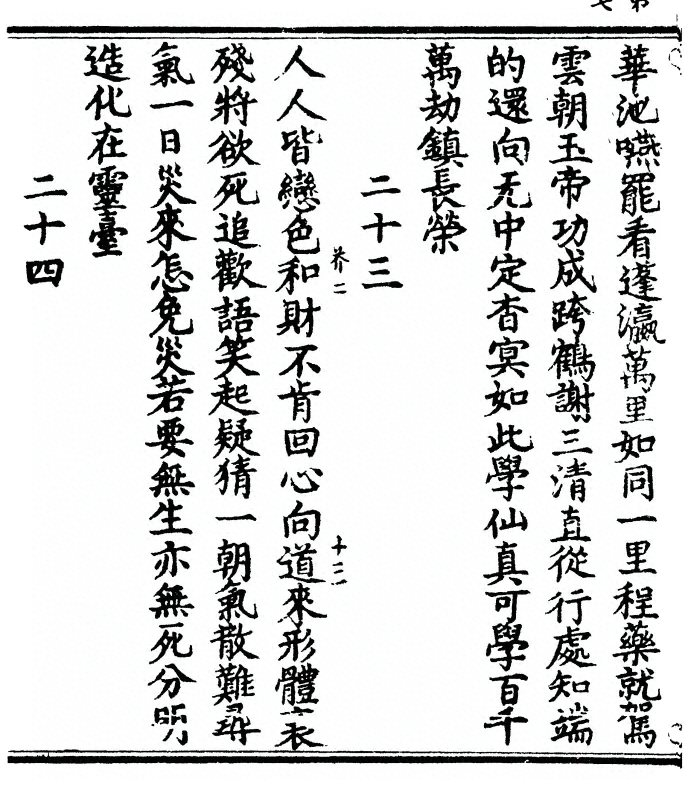 華池嚥罷看蓬瀛萬里如同一里程藥就駕
雲朝玉帝功成跨鶴謝三清直從行處知端
的還向无中定杳冥如此學仙真可學百千
萬劫鎮長榮
二十三
人人皆戀色和財不肯回心向道來形體衰
殘將欲死追歡語笑起疑猜一朝氣散難尋
氣一日災來怎免災若要無生亦無死分明
造化在靈臺
二十四